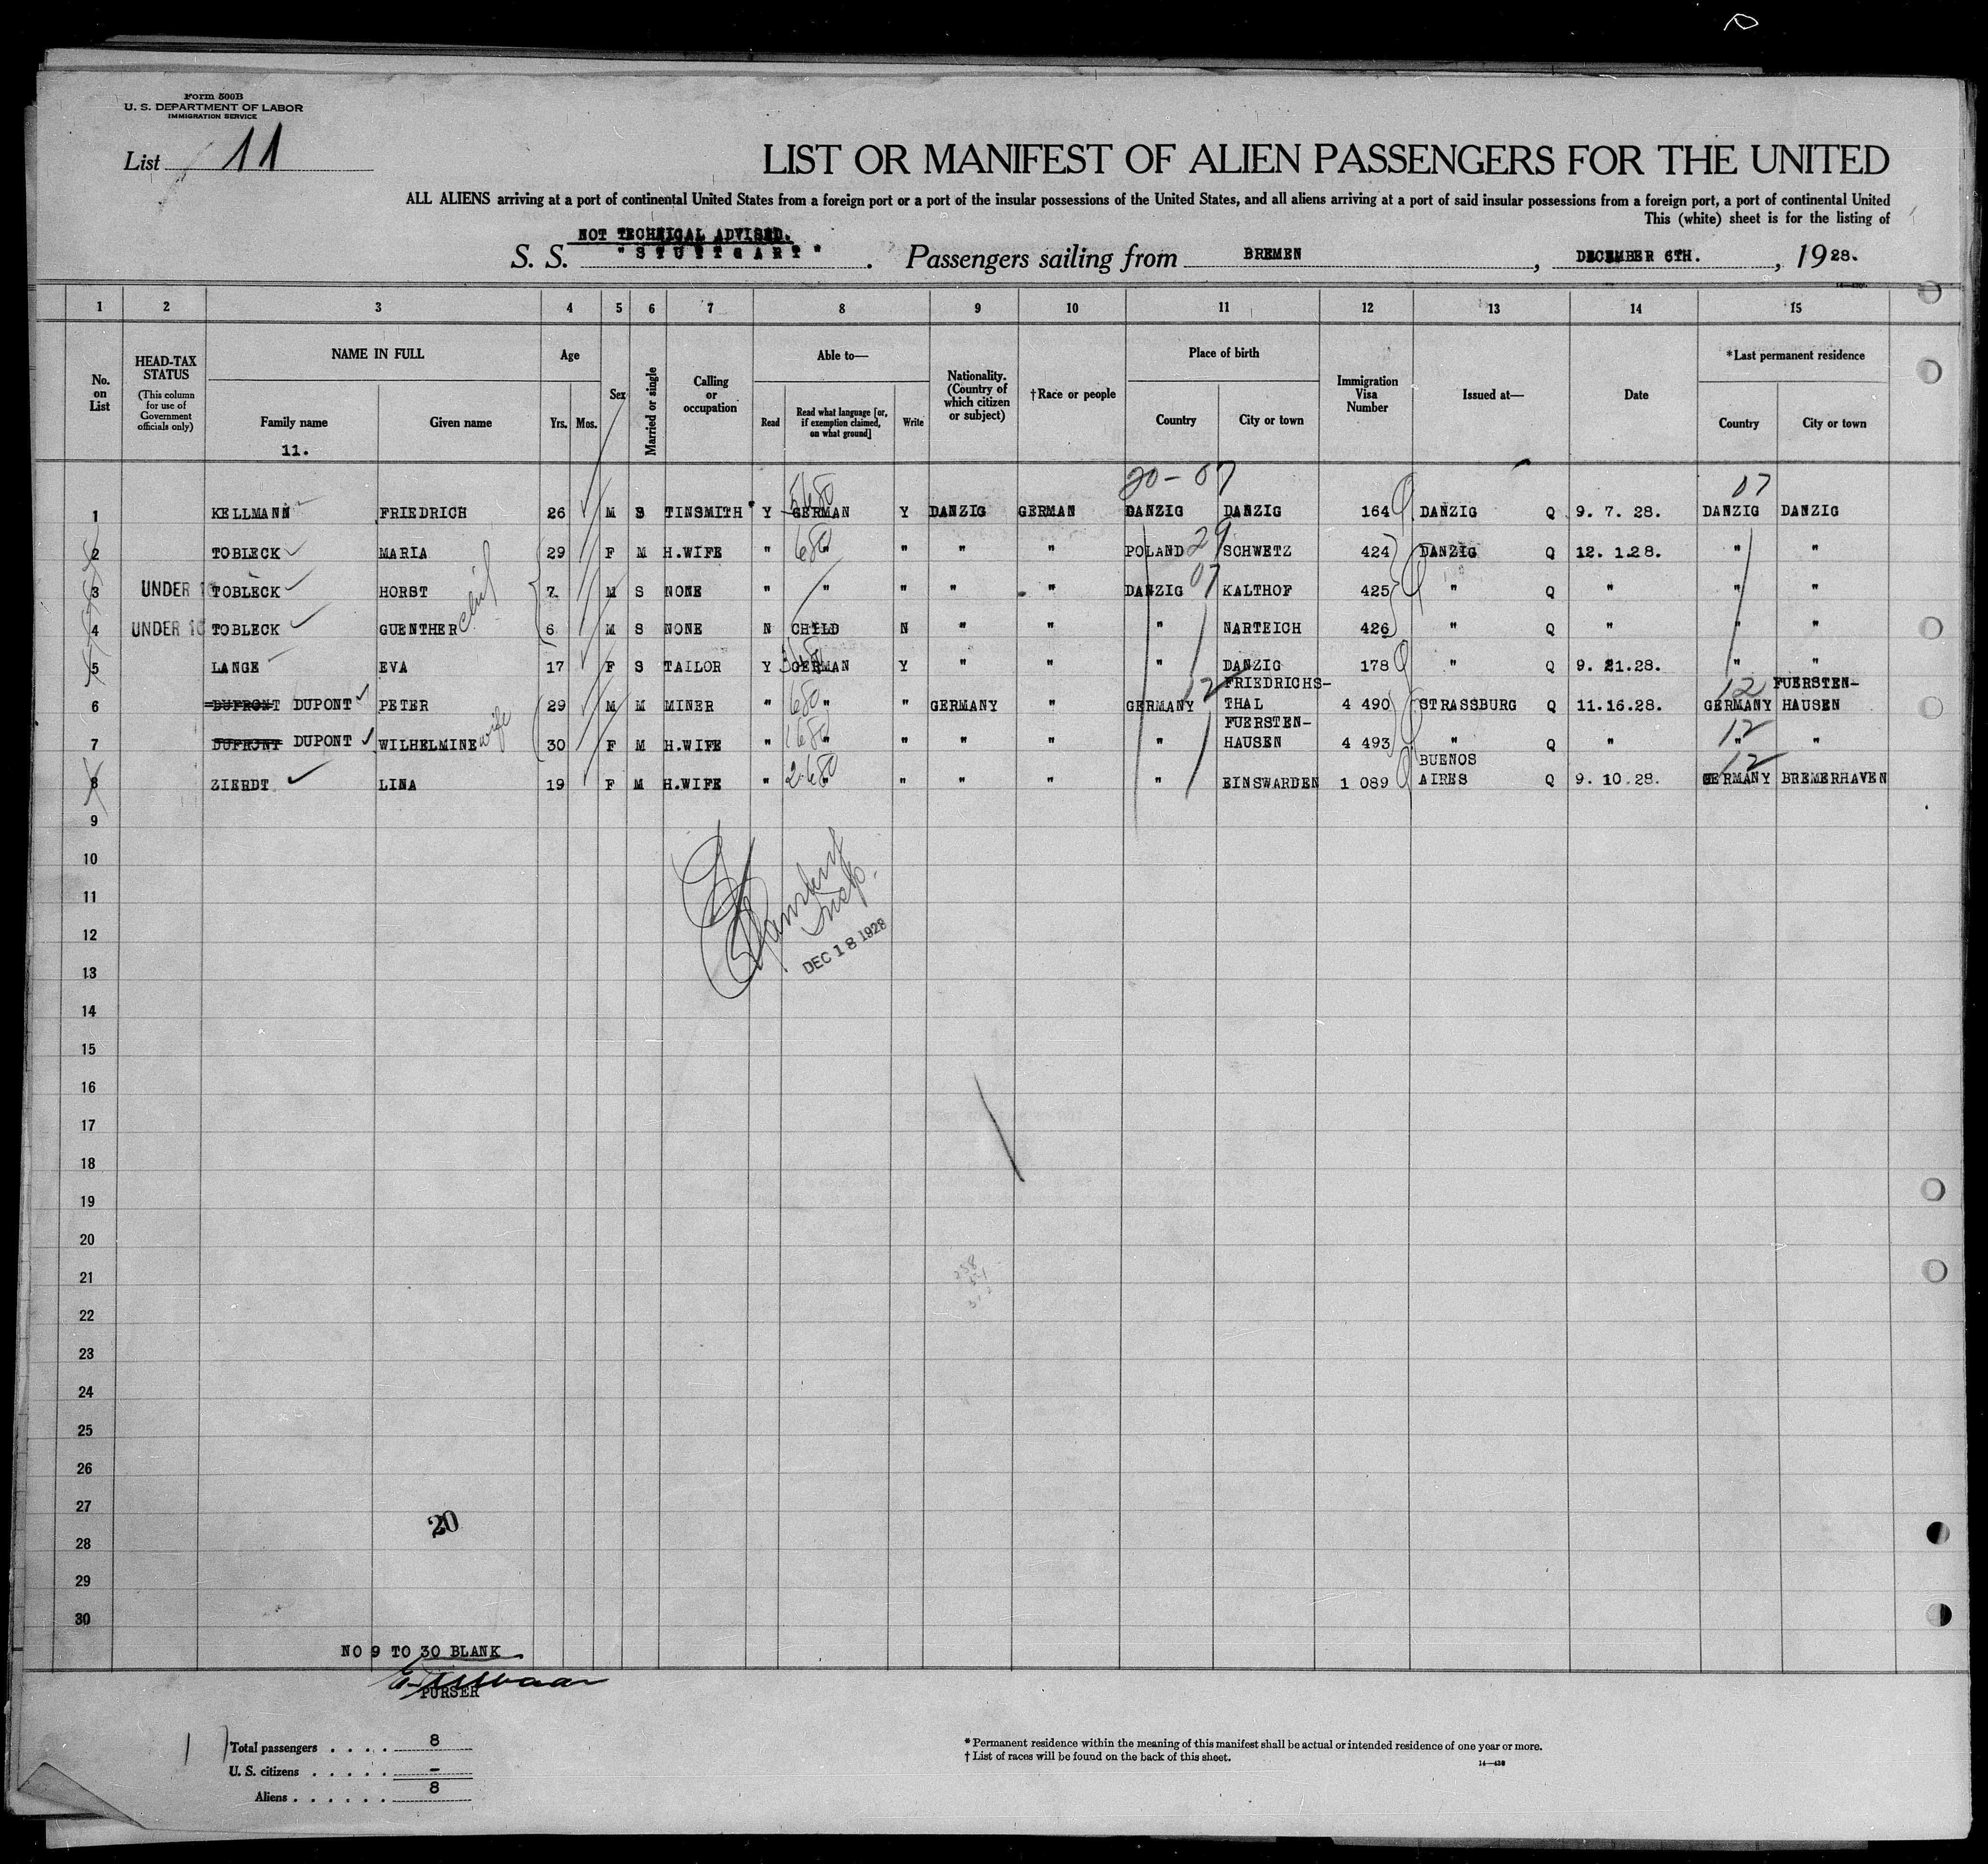 Form 500B
U. S. DEPARTMENT OF LABOR
IMMIGRATION SERVICE
List 11
LIST OR MANIFEST OF ALIEN PASSENGERS FOR THE UNITED
ALL ALIENS arriving at a port of continental United States from a foreign port or a port of the insular possessions of the United States, and all aliens arriving at a port of said insular possessions from a foreign port, a port of continental United
This (white) sheet is for the listing of
NOT TECHNICAL ADVISED.
S. S. "STUTTGART". Passengers sailing from BREMEN, DECEMBER 6TH., 1928.
1 2 3 4 5 6 7 8 9 10 11 12 13 14 15
No. on List
HEAD-TAX STATUS
(This column for use of Government officials only)
NAME IN FULL
Family name
11.
Given name
Age
Yrs. Mos.
Sex
Married or single
Calling or occupation
Able to—
Read
Read what language [or, if exemption claimed, on what ground]
Write
Nationality. (Country of which citizen or subject)
†Race or people
Place of birth
Country
City or town
Immigration Visa Number
Issued at—
Date
*Last permanent residence
Country
City or town
20-07 07
1 KELLMANN FRIEDRICH 26 M S TINSMITH Y GERMAN Y DANZIG GERMAN DANZIG DANZIG 164 DANZIG Q 9. 7. 28. DANZIG DANZIG
2 TOBLECK MARIA 29 F M H.WIFE " " " " " POLAND 29 SCHWETZ 424 DANZIG Q 12. 1.28. " "
3 UNDER 16 TOBLECK HORST 7 M S NONE " " " " " DANZIG 07 KALTHOF 425 " Q " " "
4 UNDER 16 TOBLECK GUENTHER 6 M S NONE N CHILD N " " " NARTEICH 426 " Q " " "
5 LANGE EVA 17 F S TAILOR Y GERMAN Y " " " DANZIG 178 " Q 9. 21.28. " "
6 DUFRONT DUPONT PETER 29 M M MINER " " " GERMANY " GERMANY 12 FRIEDRICHS-THAL 4 490 STRASSBURG Q 11.16.28. 12 GERMANY FUERSTEN-HAUSEN
7 DUFRONT DUPONT WILHELMINE wife 30 F M H.WIFE " " " " " " FUERSTEN-HAUSEN 4 493 " Q " 12 " "
8 ZIERDT LINA 19 F M H.WIFE " " " " " " EINSWARDEN 1 089 BUENOS AIRES Q 9. 10.28. 12 GERMANY BREMERHAVEN
9
10
11
12
DEC 18 1928
13
14
15
16
17
18
19
20
21
22
23
24
25
26
27
20
28
29
30
NO 9 TO 30 BLANK
PURSER
Total passengers . . . . 8
U. S. citizens . . . . . –
Aliens . . . . . . 8
* Permanent residence within the meaning of this manifest shall be actual or intended residence of one year or more.
† List of races will be found on the back of this sheet.
14—430